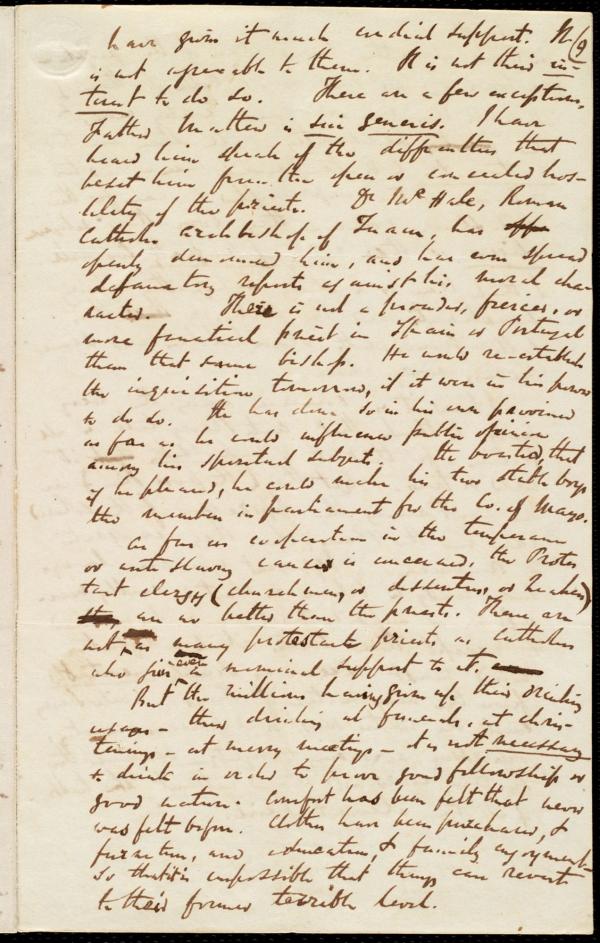 have given it much cordial support. It (9
is not agreeable to them. It is not their in-
terest to do so. There are a few exceptions.
Father Mathew is sui generis. I have
heard him speak of the difficulties that
beset him from the open or concealed hos-
tility of the priests. Dr McHale, Roman
Catholic archbishop of Tuam, has
openly denounced him, and has even spread
defamatory reports against his moral cha-
racter. There is not a prouder, fiercer, or
more fanatical priest in Spain or Portugal
than that same bishop. He would re-establish
the inquisition tomorrow, if it were in his power
to do so. He has done so in his own province
as far as he could influence public opinion
among his spiritual subjects. He boasted, that
if he pleased, he could make his two stable boys
the members in parliament for the Co. of Mayo.
As far as cooperation in the temperance
or anti slavery causes is concerned, the Protes
tant clergy (churchmen, or dissenters, or Quakers)
are no better than the priests. There are
not as many protestant priests as catholic
who give even a nominal support to it.
But the millions having given up their drinking
usages - their drinking at funerals, at chris-
tenings - at merry meetings - it is not necessary
to drink in order to prove good fellowship or
good nature. Comfort has been felt that never
was felt before. Clothes have been purchased, &
furniture, and education, & family enjoyment
So that it is impossible that things can revert
to their former terrible level.